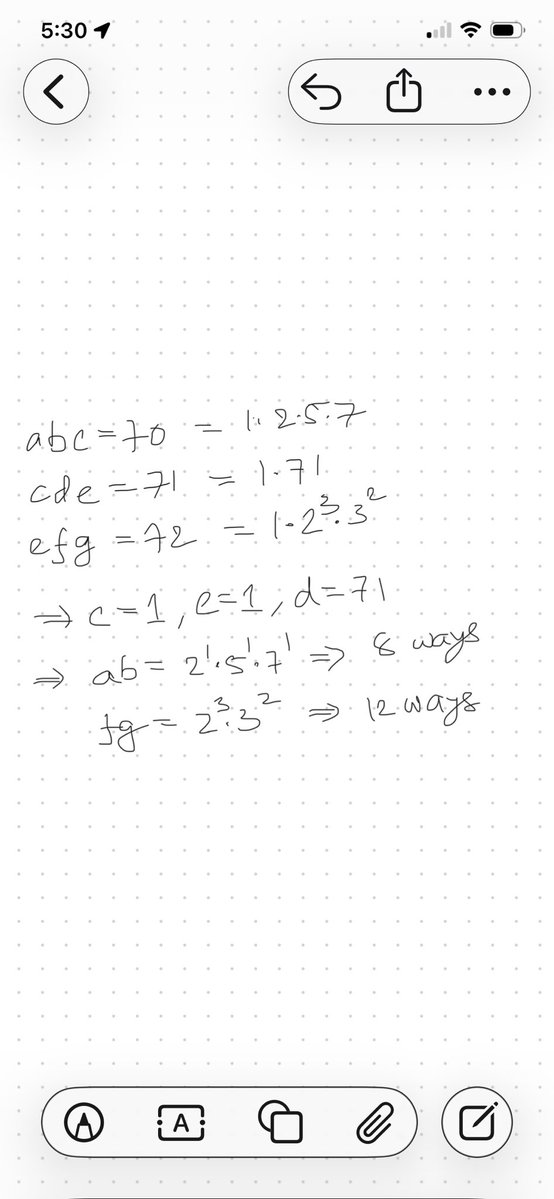 5:30
abc = 70 = 1·2·5·7
cde = 71 = 1·71
efg = 72 = 1·2³·3²
⇒ c=1, e=1, d=71
⇒ ab = 2¹·5¹·7¹ ⇒ 8 ways
fg = 2³·3² ⇒ 12 ways
A